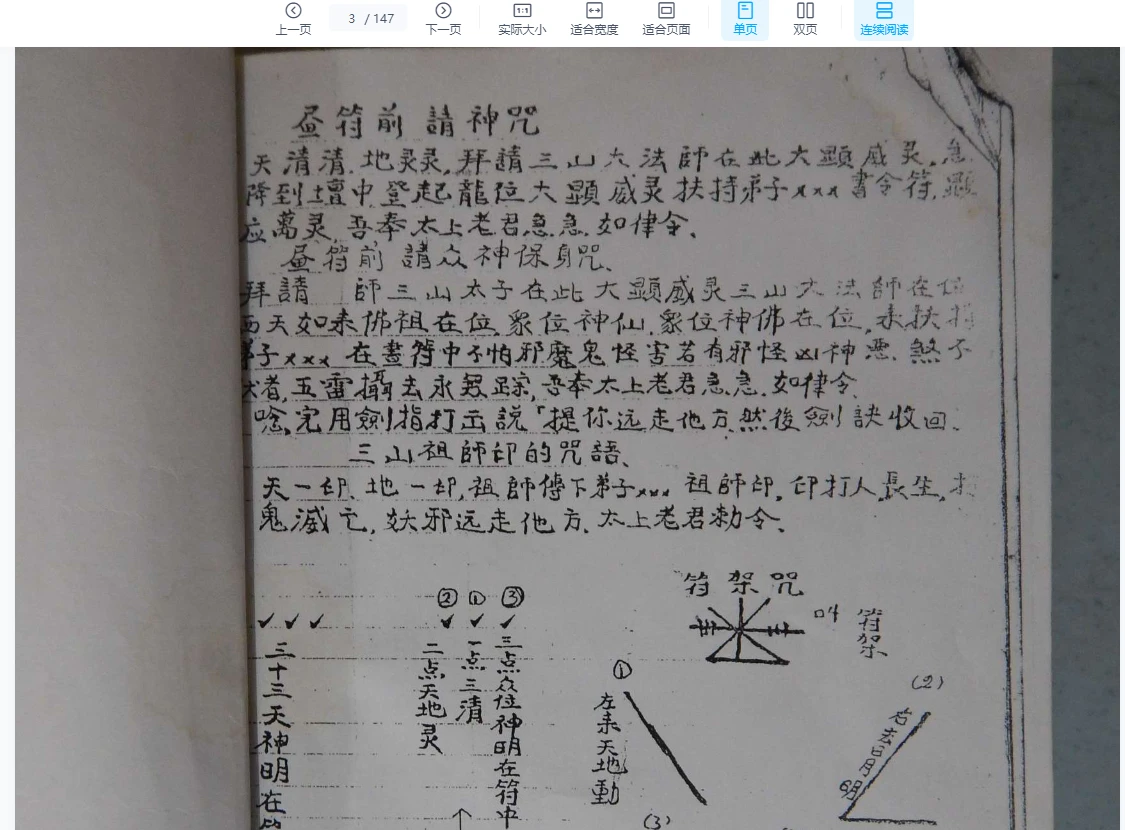 上一页
3 / 147
下一页
1:1
实际大小
适合宽度
适合页面
单页
双页
连续阅读
昼符前請神咒
天清清.地灵灵,拜請三山大法師在此大顕威灵.急
降到壇中登起龍位大顕威灵扶持弟子xxx書令符,顕
应萬灵.吾奉太上老君急急.如律令、
昼符前請众神保身咒、
拜請 師三山太子在此大顕威灵三山大法師在位
西天如来佛祖在位.象位神仙.象位神佛在位,未扶持
弟子xxx在晝符中不怕邪魔鬼怪害若有邪怪凶神悪.煞不
伏者,五雷攝去永無踪,吾奉太上老君急急.如律令.
唸完用劍指打击説「提你远走他方.然後劍訣收回.
三山祖師印的咒語、
天一印.地一印,祖師傳下弟子xxx祖師印.印打人.長生,打
鬼滅亡,妖邪远走他方.太上老君勅令、
符架咒
叫
符架
✓ ✓ ✓
三十三天神明在符
② ① ③
✓ ✓ ✓
二点天地灵
一点三清
三点众位神明在符中
①
左来天地動
(2)
右去日月明
(3)